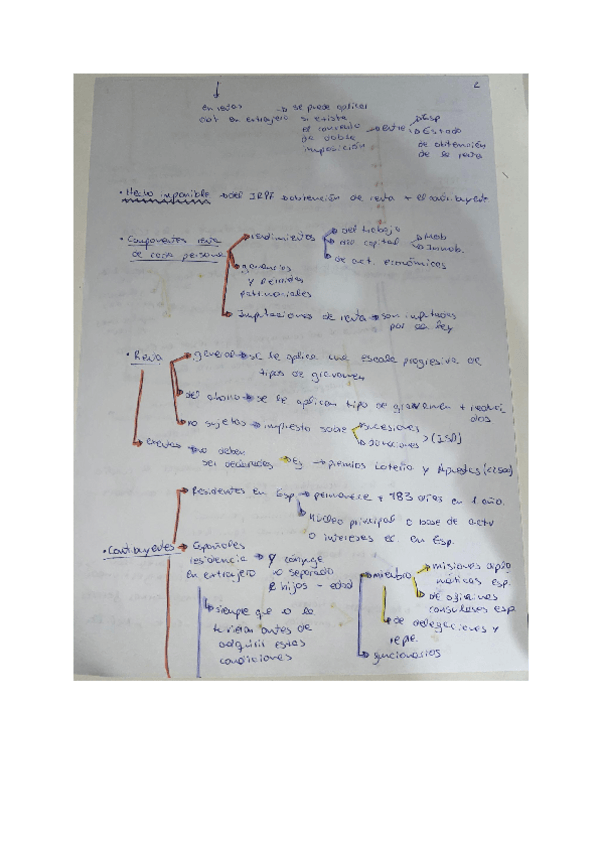 2
en estos → se puede aplicar
obt en extrajero si existe → Esp
el convenio → entre → Estado
de doble de obtención
imposición de la renta
• Hecho imponible → del IRPF → obtención de renta + el contribuyente
• Componentes renta → rendimientos → del trabajo → Mob
de cada persona → capital → Inmob.
→ de act. económicas
→ ganancias
y perdidas
patrimoniales
→ Imputaciones de renta → son imputadas
por la ley
• Renta → general → se le aplica una escala progresiva de
tipos de gravamen
→ del ahorro → se le aplican tipo de gravamen + reduci
dos
→ no sujetas → impuesto sobre → sucesiones
→ donaciones > (ISD)
→ exentas → no deben
ser declaradas → Ej → premios Loteria y Apuestas
→ Residentes en Esp → permanece + 183 días en 1 año.
→ Núcleo principal o base de activ
o intereses ec. en Esp.
• Contribuyentes → Españoles
residencia → y conyuge
en extrajero no separado
e hijos - edad
→ miembro → misiones diplo
máticas Esp.
→ de oficinas
consulares esp
→ de delegaciones y
repre.
→ funcionarios
→ siempre que no lo
tuvieran antes de
adquirir estas
condiciones